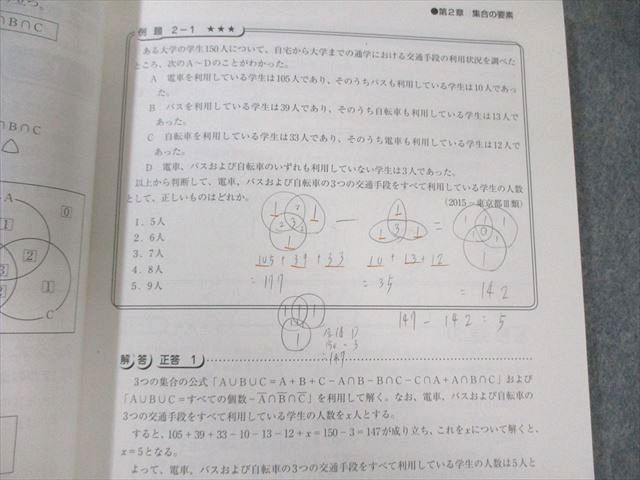 ●第2章 集合の要素
例題 2-1 ★★★
ある大学の学生150人について、自宅から大学までの通学における交通手段の利用状況を調べた
ところ、次のA~Dのことがわかった。
A 電車を利用している学生は105人であり、そのうちバスも利用している学生は10人であっ
た。
B バスを利用している学生は39人であり、そのうち自転車も利用している学生は13人で
あった。
C 自転車を利用している学生は33人であり、そのうち電車も利用している学生は12人で
あった。
D 電車、バスおよび自転車のいずれも利用していない学生は3人であった。
以上から判断して、電車、バスおよび自転車の3つの交通手段をすべて利用している学生の人数
として、正しいものはどれか。
(2015-東京都Ⅲ類)
1.5人
2.6人
3.7人
4.8人
5.9人
1 2 1 2 3 2 1
-
1 1 3 1
=
1 1 1 1 0 1 1
105+39+33
10+13+12
=177
=35
=142
147-142=5
1 1 1 1
全体 D
150-3
=147
解答 正答 1
3つの集合の公式「A∪B∪C=A+B+C-A∩B-B∩C-C∩A+A∩B∩C」および
「A∪B∪C=すべての個数-A̅∩B̅∩C̅」を利用して解く。なお、電車、バスおよび自転車の
3つの交通手段をすべて利用している学生の人数をx人とする。
すると、105+39+33-10-13-12+x=150-3=147が成り立ち、これをxについて解くと、
x=5となる。
よって、電車、バスおよび自転車の3つの交通手段をすべて利用している学生の人数は5人と
B∩C
∩B∩C
A
0
1
2
3
2
1
C